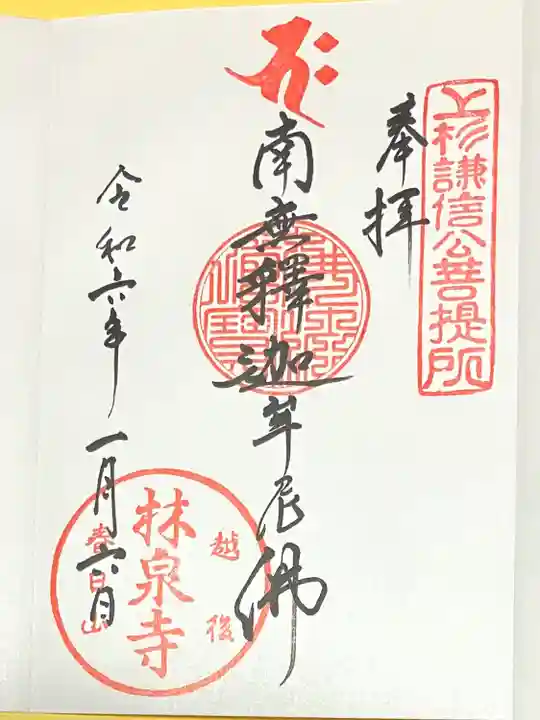 上杉謙信公菩提所
奉拝
南無釋迦牟尼佛
令和六年一月六日
越後
林泉寺
春日山